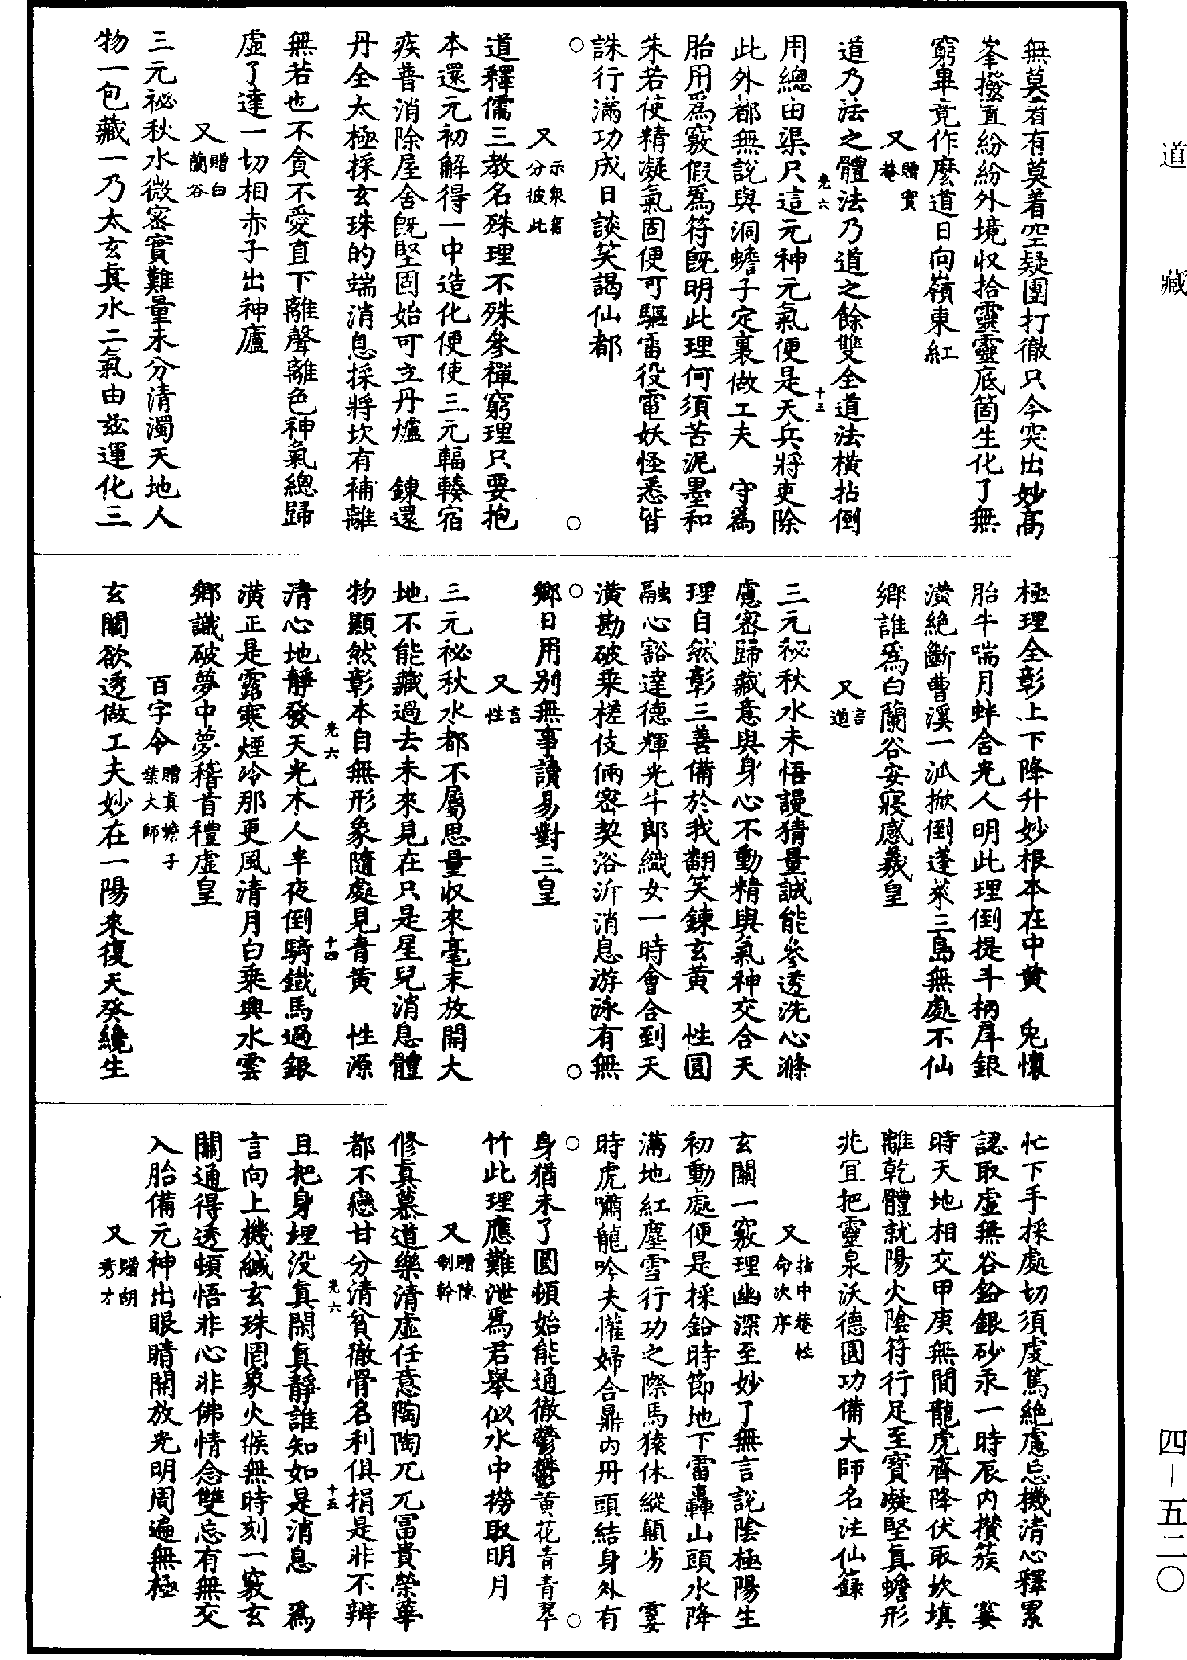 道藏
無莫着有有莫着空疑團打徹只今突出妙高
峯撥置紛紛外境収拾靈靈底箇生化了無
窮畢竟作麼道日向嶺東紅
又贈實菴
道乃法之體法乃道之餘雙全道法橫拈倒
光六 十三
用總由渠只這元神元氣便是天兵將吏除
此外都無說與洞蟾子定裏做工夫 守爲
胎用爲竅假爲符旣明此理何須苦泥墨和
朱若使精凝氣固便可驅雷役電妖怪悉皆
誅行滿功成日談笑謁仙都
又示衆無分彼此
道釋儒三教名殊理不殊參禪窮理只要抱
本還元初解得一中造化便使三元輻輳宿
疾普消除屋舍旣堅固始可立丹爐 鍊還
丹全太極採玄珠的端消息採將坎有補離
無若也不貪不愛直下離聲離色神氣總歸
虛了達一切相赤子出神廬
又贈白蘭谷
三元祕秋水微密實難量未分清濁天地人
物一包藏一乃太玄眞水二氣由茲運化三
極理全彰上下降升妙根本在中黄 兎懷
胎牛喘月蚌含光人明此理倒提斗柄戽銀
潢絕斷曹溪一派掀倒蓬萊三島無處不仙
鄉誰爲白蘭谷安寢感羲皇
又言道
三元秘秋水未悟謾猜量誠能參透洗心滌
慮密歸藏意與身心不動精與氣神交合天
理自然彰三善備於我翻笑鍊玄黄 性圓
融心豁達德輝光牛郎織女一時會合到天
潢勘破乘槎伎倆密契浴沂消息游泳有無
鄉日用别無事讀易對三皇
又言性
三元祕秋水都不屬思量収來毫末放開大
地不能藏過去未來見在只是星兒消息體
物顯然彰本自無形象隨處見青黄 性源
光六 十四
清心地靜發天光木人半夜倒騎鐵馬過銀
潢正是露寒煙冷那更風清月白乘興水雲
鄉識破夢中夢稽首禮虛皇
百字令贈眞蟾子葉大師
玄關欲透做工夫妙在一陽來復天癸纔生
忙下手採處切須虔篤絕慮忘機清心釋累
認取虛無谷鉛銀砂汞一時辰内攢簇 霎
時天地相交甲庚無間龍虎齊降伏取坎填
離乾體就陽火陰符行足至寶凝堅眞蟾形
兆宜把靈泉沃德圓功備大師名注仙籙
又指中菴性命次序
玄關一竅理幽深至妙了無言說陰極陽生
初動處便是採鉛時節地下雷轟山頭水降
滿地紅塵雪行功之際馬猿休縱顛劣 霎
時虎嘯龍吟夫懽婦合鼎内丹頭結身外有
身猶未了圓頓始能通徹鬱鬱黄花青青翠
竹此理應難泄爲君舉似水中撈取明月
又贈陳制幹
修眞慕道樂清虛任意陶陶兀兀冨貴榮華
都不戀甘分清貧徹骨名利俱捐是非不辨
光六 十五
且把身埋没眞閑眞靜誰知如是消息 爲
言向上機緘玄珠罔象火候無時刻一竅玄
關通得透頓悟非心非佛情念雙忘有無交
入胎備元神出眼睛開放光明周遍無極
又贈胡秀才
四－五二〇